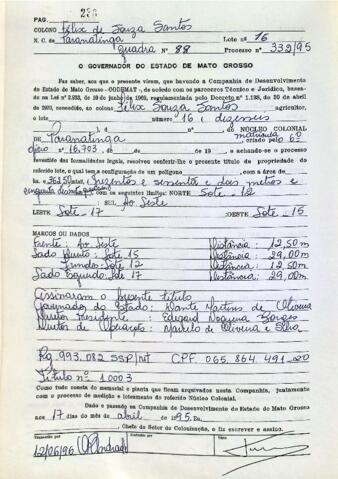 PAG. 236
COLONO Félix de Souza Santos Lote nº 16
N. C. de Paranatinga quadra nº 88 Processo nº 332/95
O GOVERNADOR DO ESTADO DE MATO GROSSO
Faz saber, aos que o presente virem, que havendo a Companhia de Desenvolvimento
do Estado de Mato Grosso - CODEMAT -, de acordo com os pareceres Técnico e Jurídico, basea-
da na Lei nº 2.933, de 20 de junho de 1969, regulamentada pelo Decreto nº 1.138, de 30 de abril
de 1970, concedido, ao colono Félix Souza Santos agricultor,
o lote, número 16 (dezesseis
do NÚCLEO COLONIAL matrícula
DE Paranatinga criado pelo
nº 16.903, de de 19 , e achando-se o processo
revestido das formalidades legais, resolveu conferir-lhe o presente título de propriedade do
referido lote, o qual tem a configuração de um polígono com a área de
ha. e 362,50 m² (trezentos e sessenta e dois metros e
com os seguintes limites: NORTE Lote - 12
SUL Av Leste
LESTE Lote - 17 OESTE Lote - 15
MARCOS OU DADOS
Frente: Av Leste Distância: 12,50 m
Lado Direito: Lote 15 Distância: 29,00 m
Fundos: Lote 12 Distância: 12,50 m
Lado Esquerdo: Lote 17 Distância: 29,00 m
Assinaram o presente título
Governador do Estado: Dante Martins de Oliveira
Diretor Presidente: Edgard Nogueira Borges
Diretor de Operação: Marcelo de Oliveira e Silva
Rg 993.082 SSP/MT CPF 065.864.491-20
Título nº 10003
Como tudo consta do memorial e planta que ficam arquivados nesta Companhia, juntamente
com o processo de medição e loteamento do referido Núcleo Colonial.
Dado e passado na Companhia de Desenvolvimento do Estado de Mato Grosso
aos 17 dias do mês de abril de 1995. Eu,
, Chefe do Setor de Colonização, o fiz escrever e assino.
Transcrito por
12/06/96